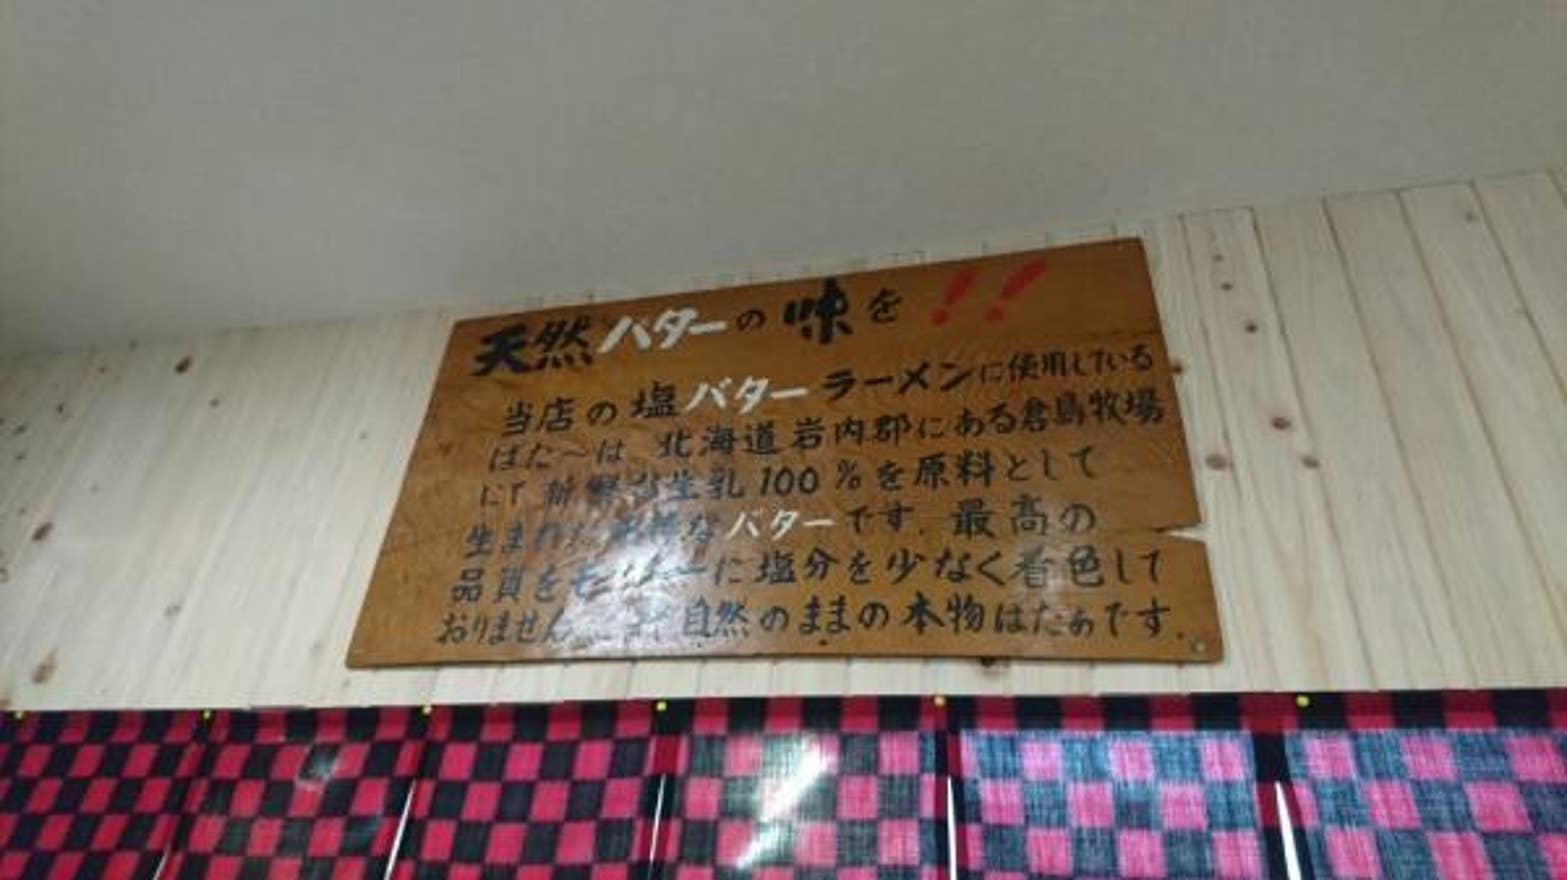 天然バターの味を!!
当店の塩バターラーメンに使用している
ばた〜は 北海道岩内郡にある倉島牧場
にて新鮮な生乳100%を原料として
生まれた なバターです。最高の
品質をモットーに塩分を少なく着色して
おりません 自然のままの本物ばたぁです。